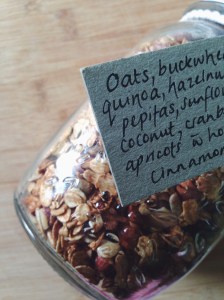 Oats, buckwhe
quinoa, hazelnu
pepitas, sunflo
coconut, cranb
apricots w ho
cinnamo